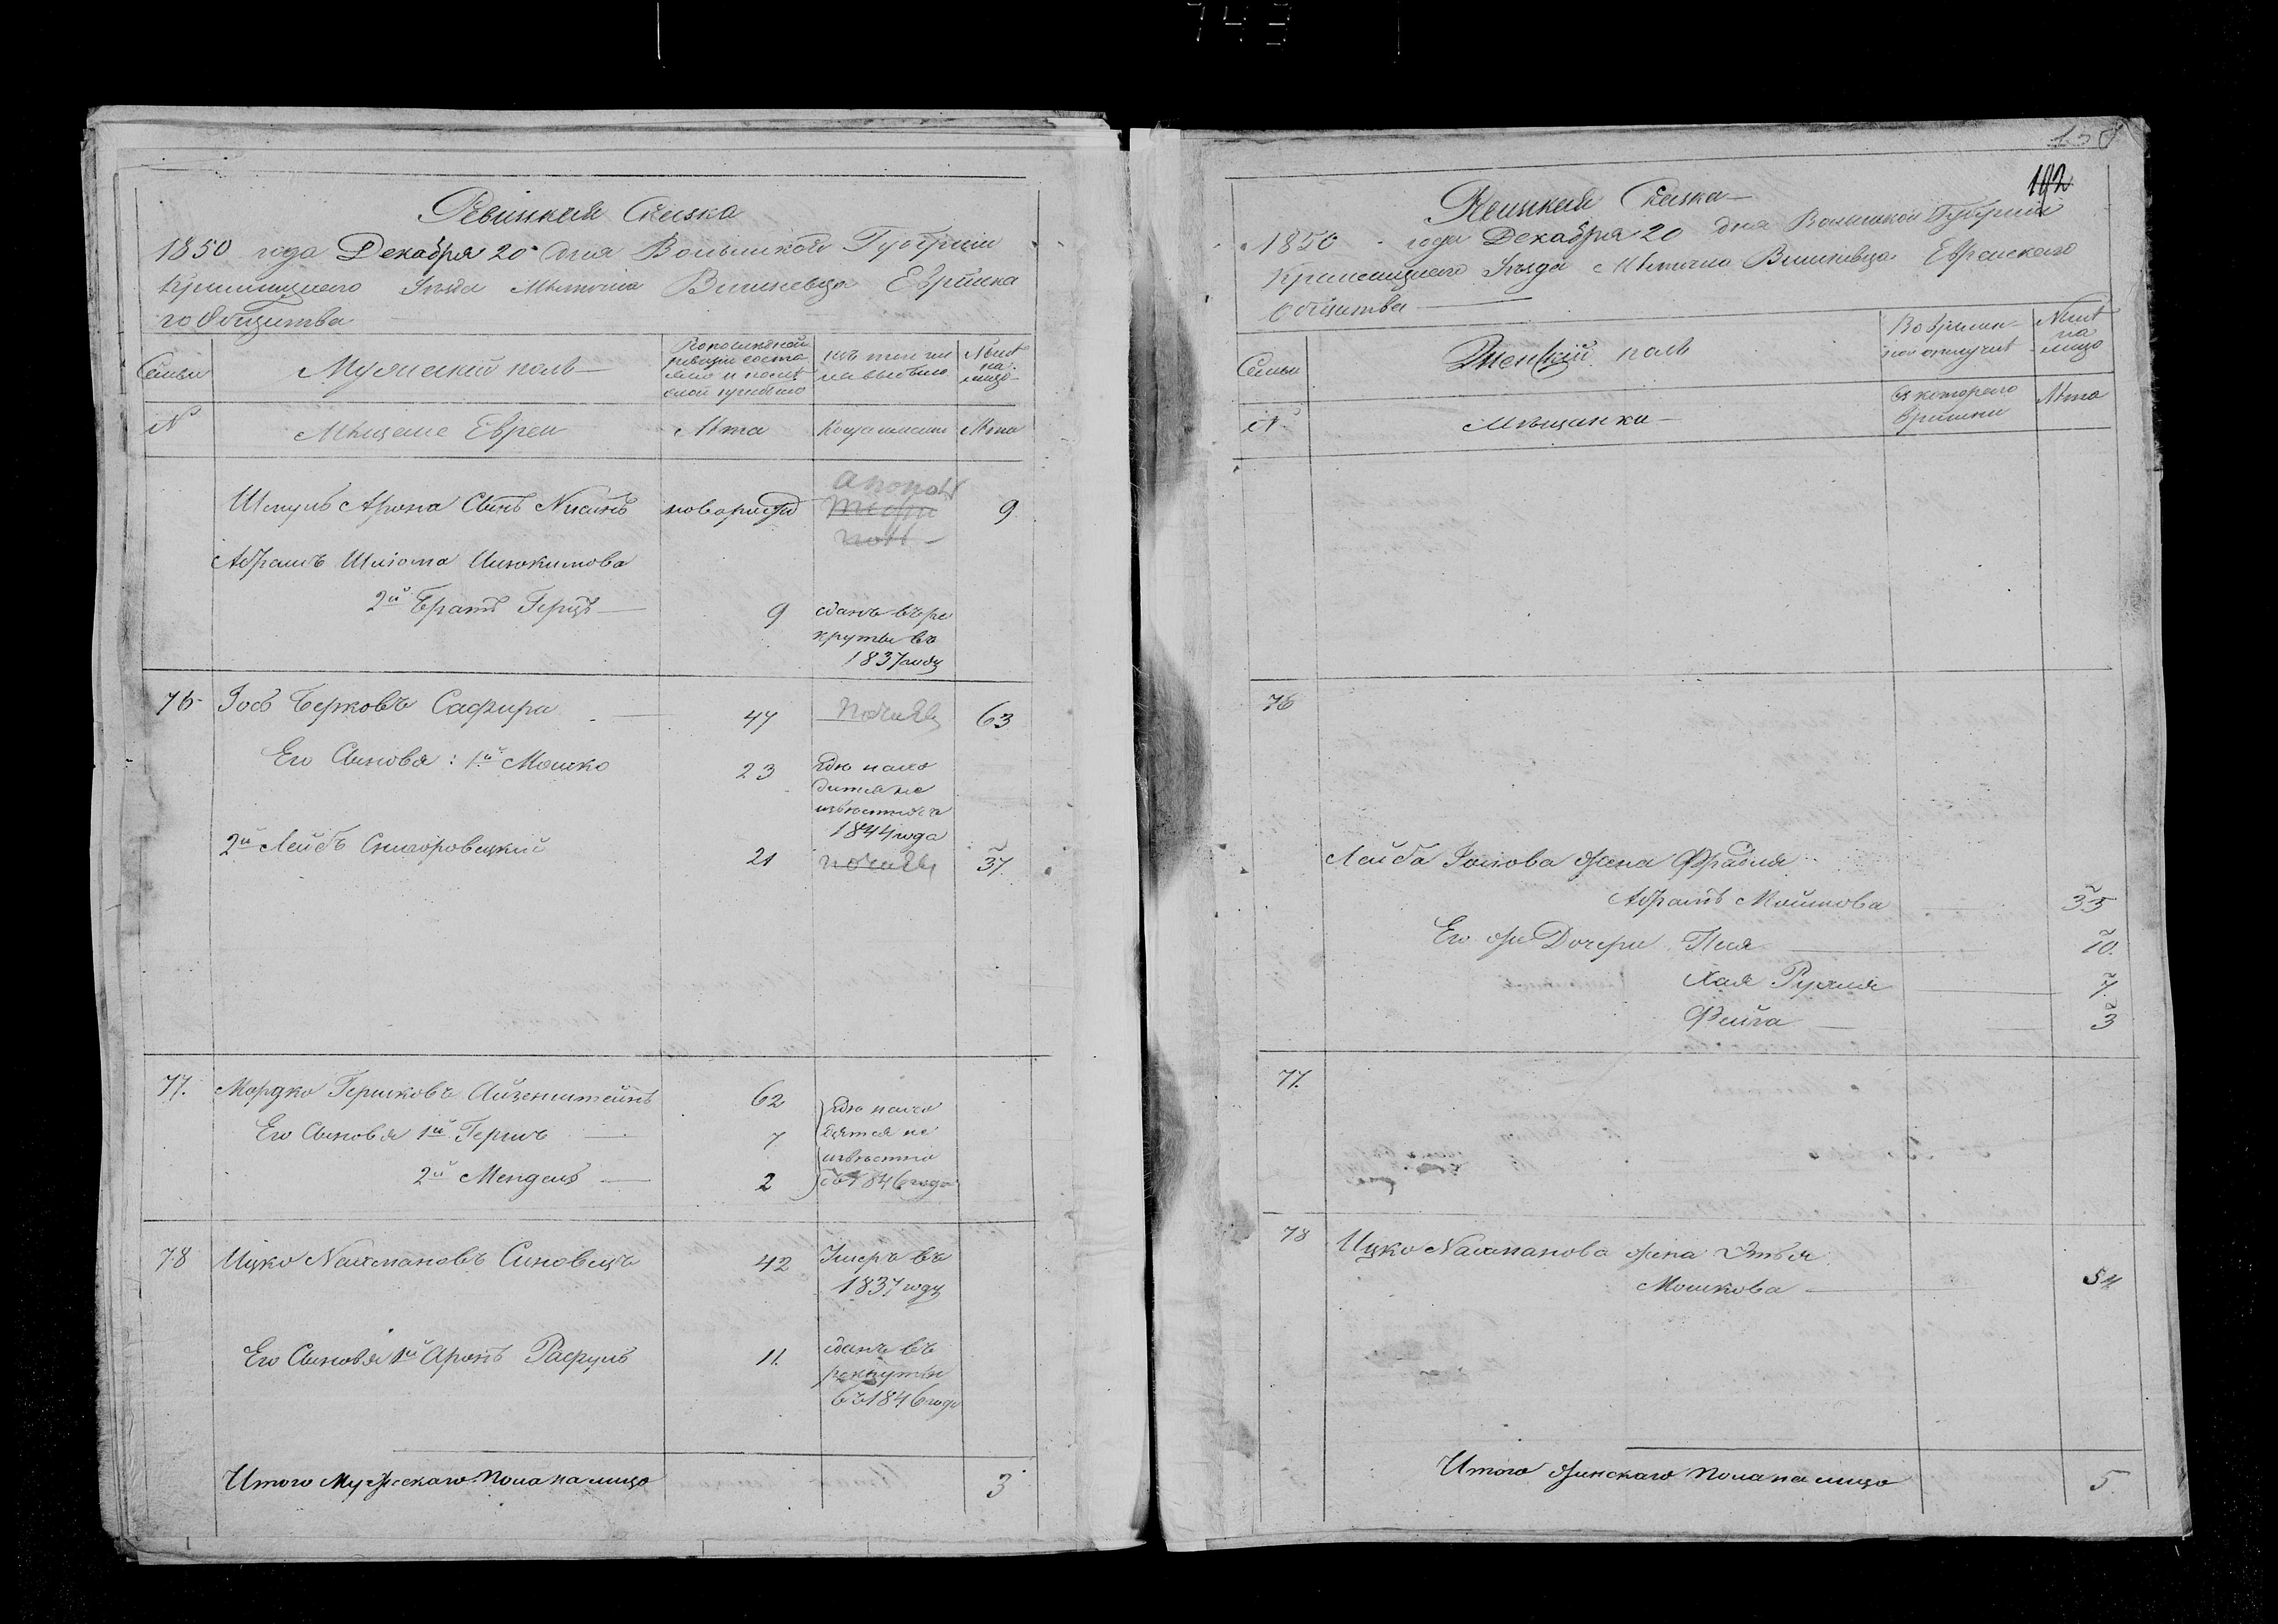 743
Ревизская Сказка
1850 года Декабря 20 дня Волынской Губернии
Кременецкого Уезда Местечка Вишневца Еврейска
го Общества
Семьи
Мужеский полъ
По последней
ревизии состо
яло и после
оной прибыло
изъ того чи
сла выбыло
Ныне
на
лицо
N
Мещане Евреи
Лета
Когда именно
Лета
Шмуль Арона Сынъ Нисинъ новорожд 9
Абрамъ Шлiома
2й Братъ Герцъ 9 сданъ въ ре
круты въ
1837 году
76 Iось Берковъ Сафира 47 63
Его Сыновья: 1й Мошко 23 где нахо
дится не
известно съ
1844 года
2й Лейбъ 21 37
77. Мордко Гершковъ Айзенштейнъ 62 где нахо
Его Сыновья 1й Гершъ 7 дятся не
известно
2й Мендель 2 съ 1846 года
78 Ицко Нахмановъ Синовецъ 42 Умеръ въ
1837 году
Его Сыновья 1й Аронъ Рафуль 11. сданъ въ
рекруты
въ 1846 годе
Итого Мужескаго Пола на лицо 3
102
Ревизская Сказка
1850 года Декабря 20 дня Волынской Губернии
Кременецкого Уезда Местечка Вишневца Еврейского
Общества
Семьи
Женский полъ
Во времен
ной отлучке
Ныне
на
лицо
N
Мещанка
Съ которого
времени
Лета
76
Лейба Iосiова жена Фрейда
Абрамъ Мошкова 35
Его же Дочери Песя 10.
Хая Рухля 7.
Фейга 3
77.
78 Ицко Нахманова жена Этля
Мошкова 54
Итого женскаго Пола на лицо 5